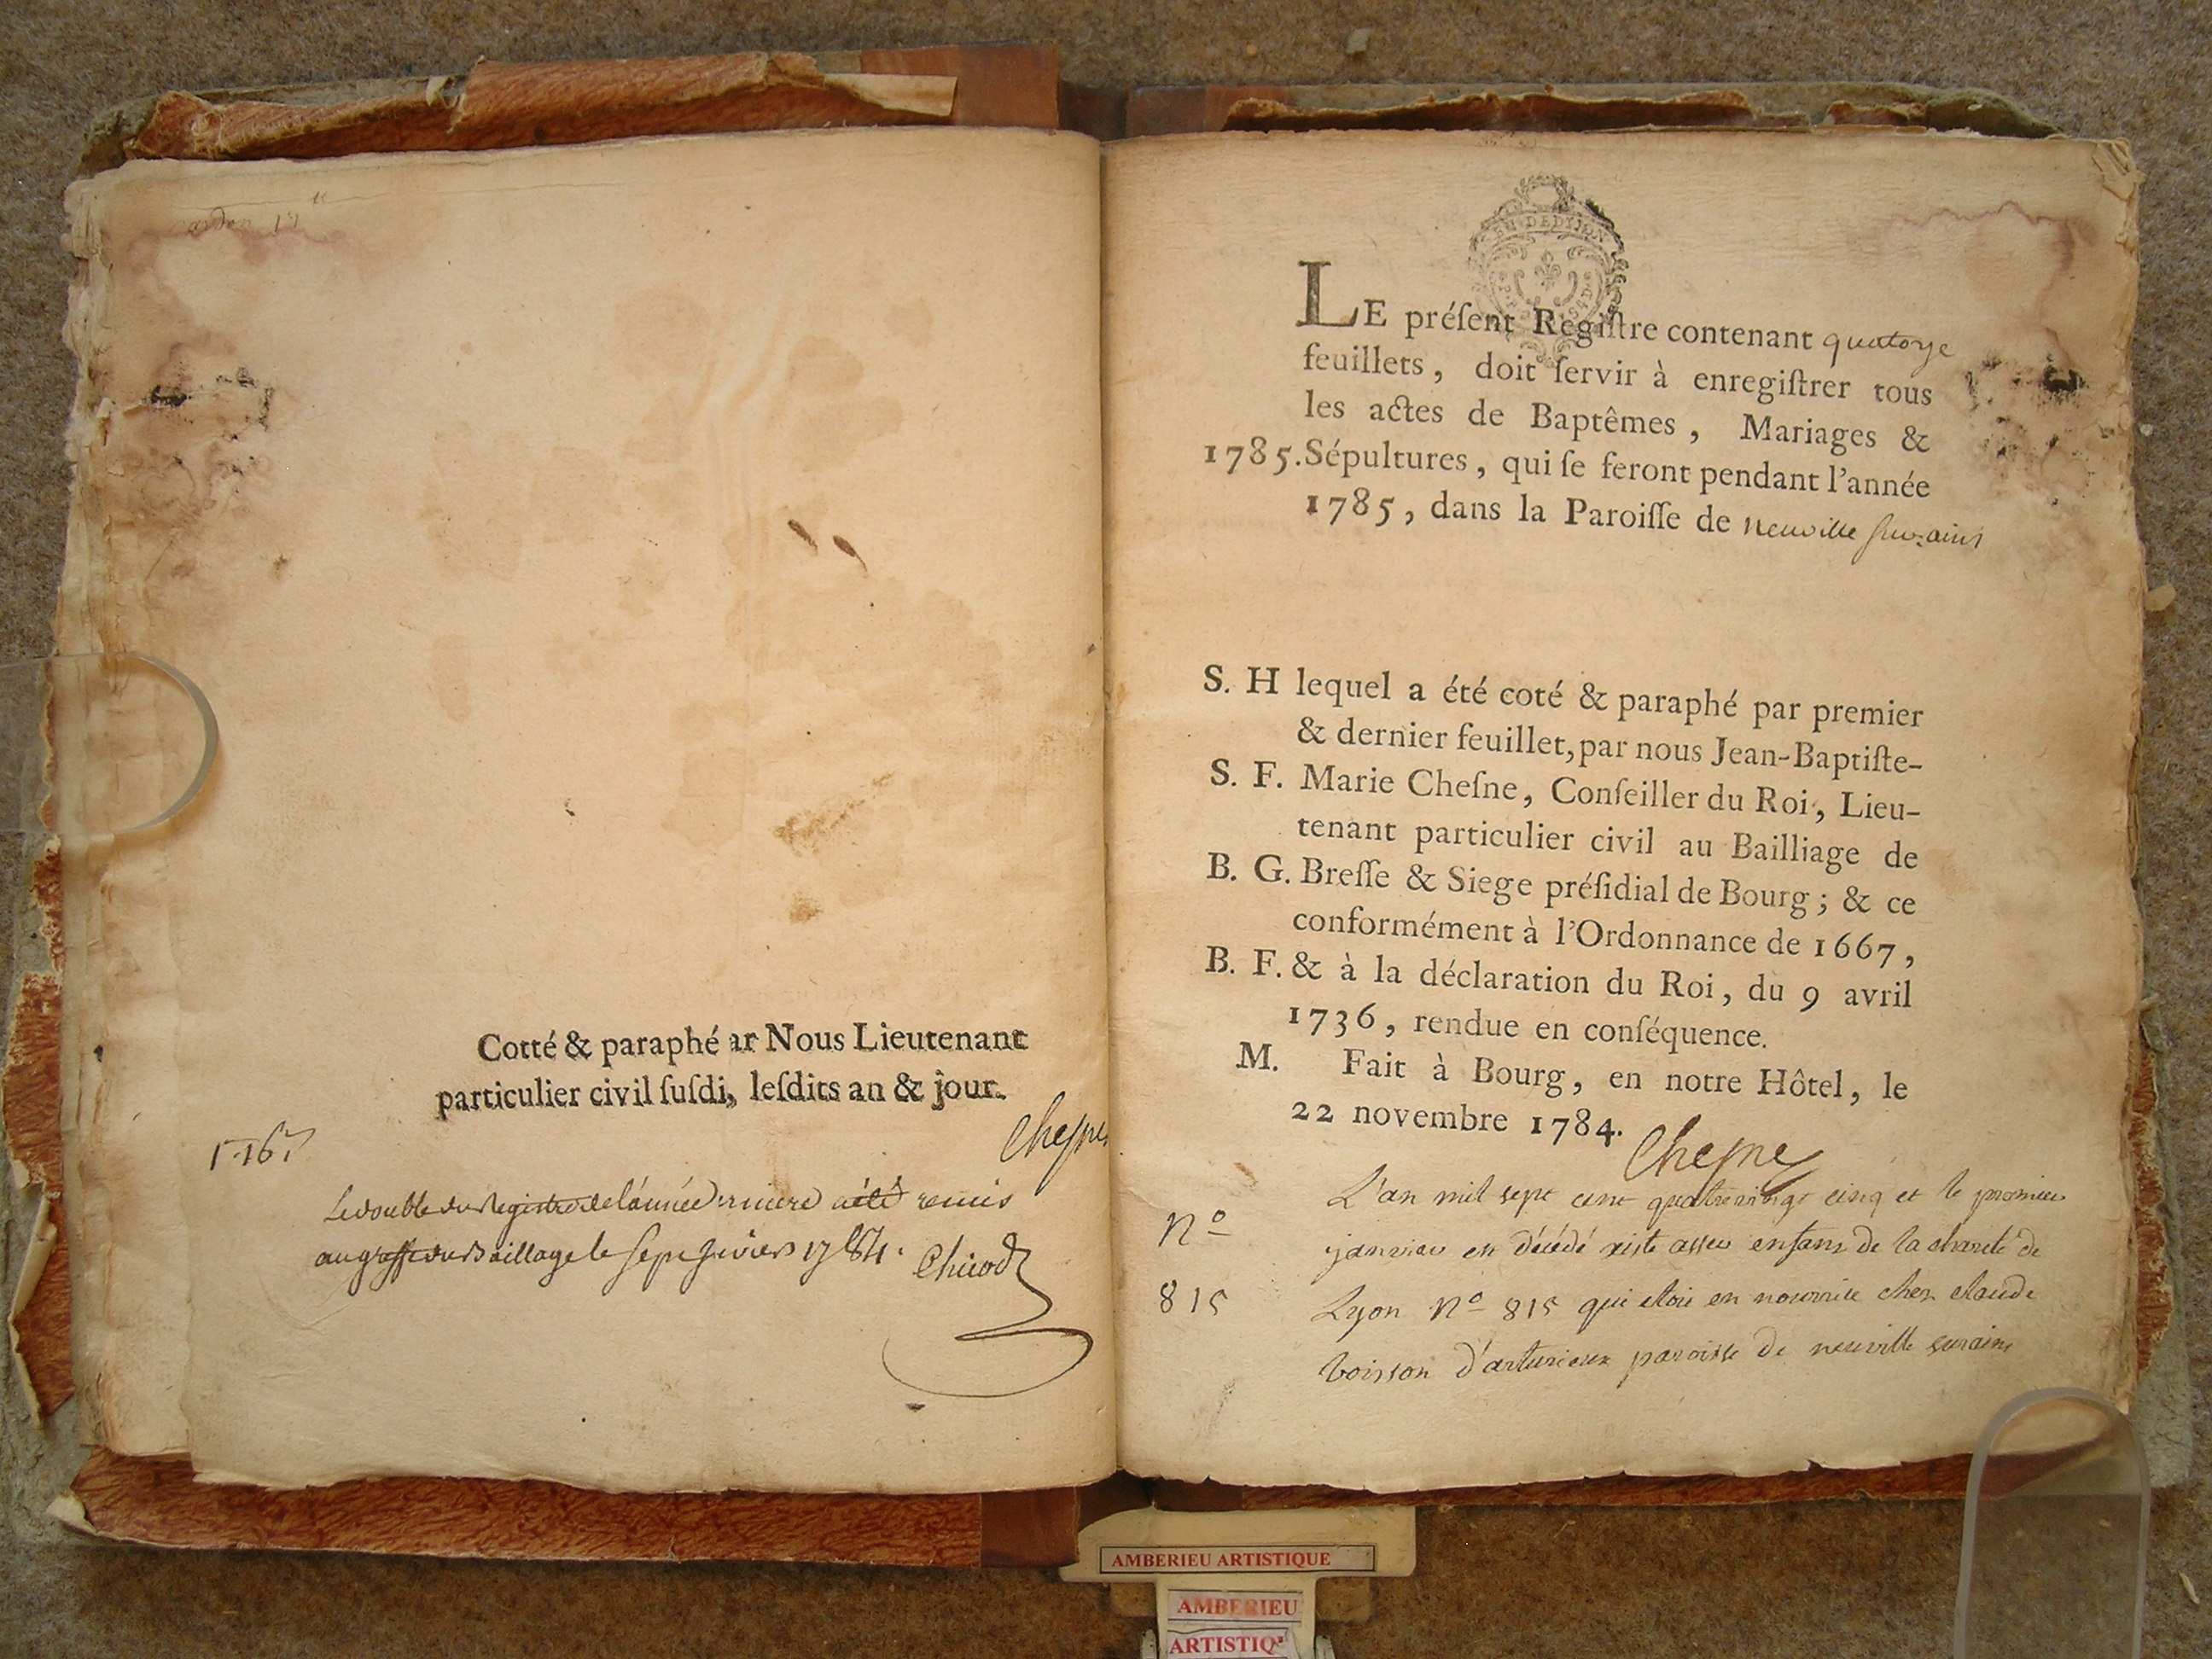 Cotté & paraphé ar Nous Lieutenant
particulier civil ſuſdi, leſdits an & jour.
Cheſne
Le double du Registre de l'année derniere a été remis
au greffe du Bailliage le sept Janvier 1784.
GEN DE DYJON
LE préſent Regiſtre contenant quatorze
feuillets, doit ſervir à enregiſtrer tous
les actes de Baptêmes, Mariages &
1785. Sépultures, qui ſe feront pendant l'année
1785, dans la Paroiſſe de neuville ſur ains
S. H lequel a été coté & paraphé par premier
& dernier feuillet, par nous Jean-Baptiſte-
S. F. Marie Cheſne, Conſeiller du Roi, Lieu-
tenant particulier civil au Bailliage de
B. G. Breſſe & Siege préſidial de Bourg; & ce
conformément à l'Ordonnance de 1667,
B. F. & à la déclaration du Roi, du 9 avril
1736, rendue en conſéquence.
M. Fait à Bourg, en notre Hôtel, le
22 novembre 1784.
Cheſne
L'an mil sept cent quatrevingt cinq et le premier
N° janvier est décédé enfant de la charité de
815 Lyon N° 815 qui etoit en nourrice chez claude
boisson d'arturieux paroisse de neuville surains
AMBERIEU ARTISTIQUE
AMBERIEU
ARTISTIQ